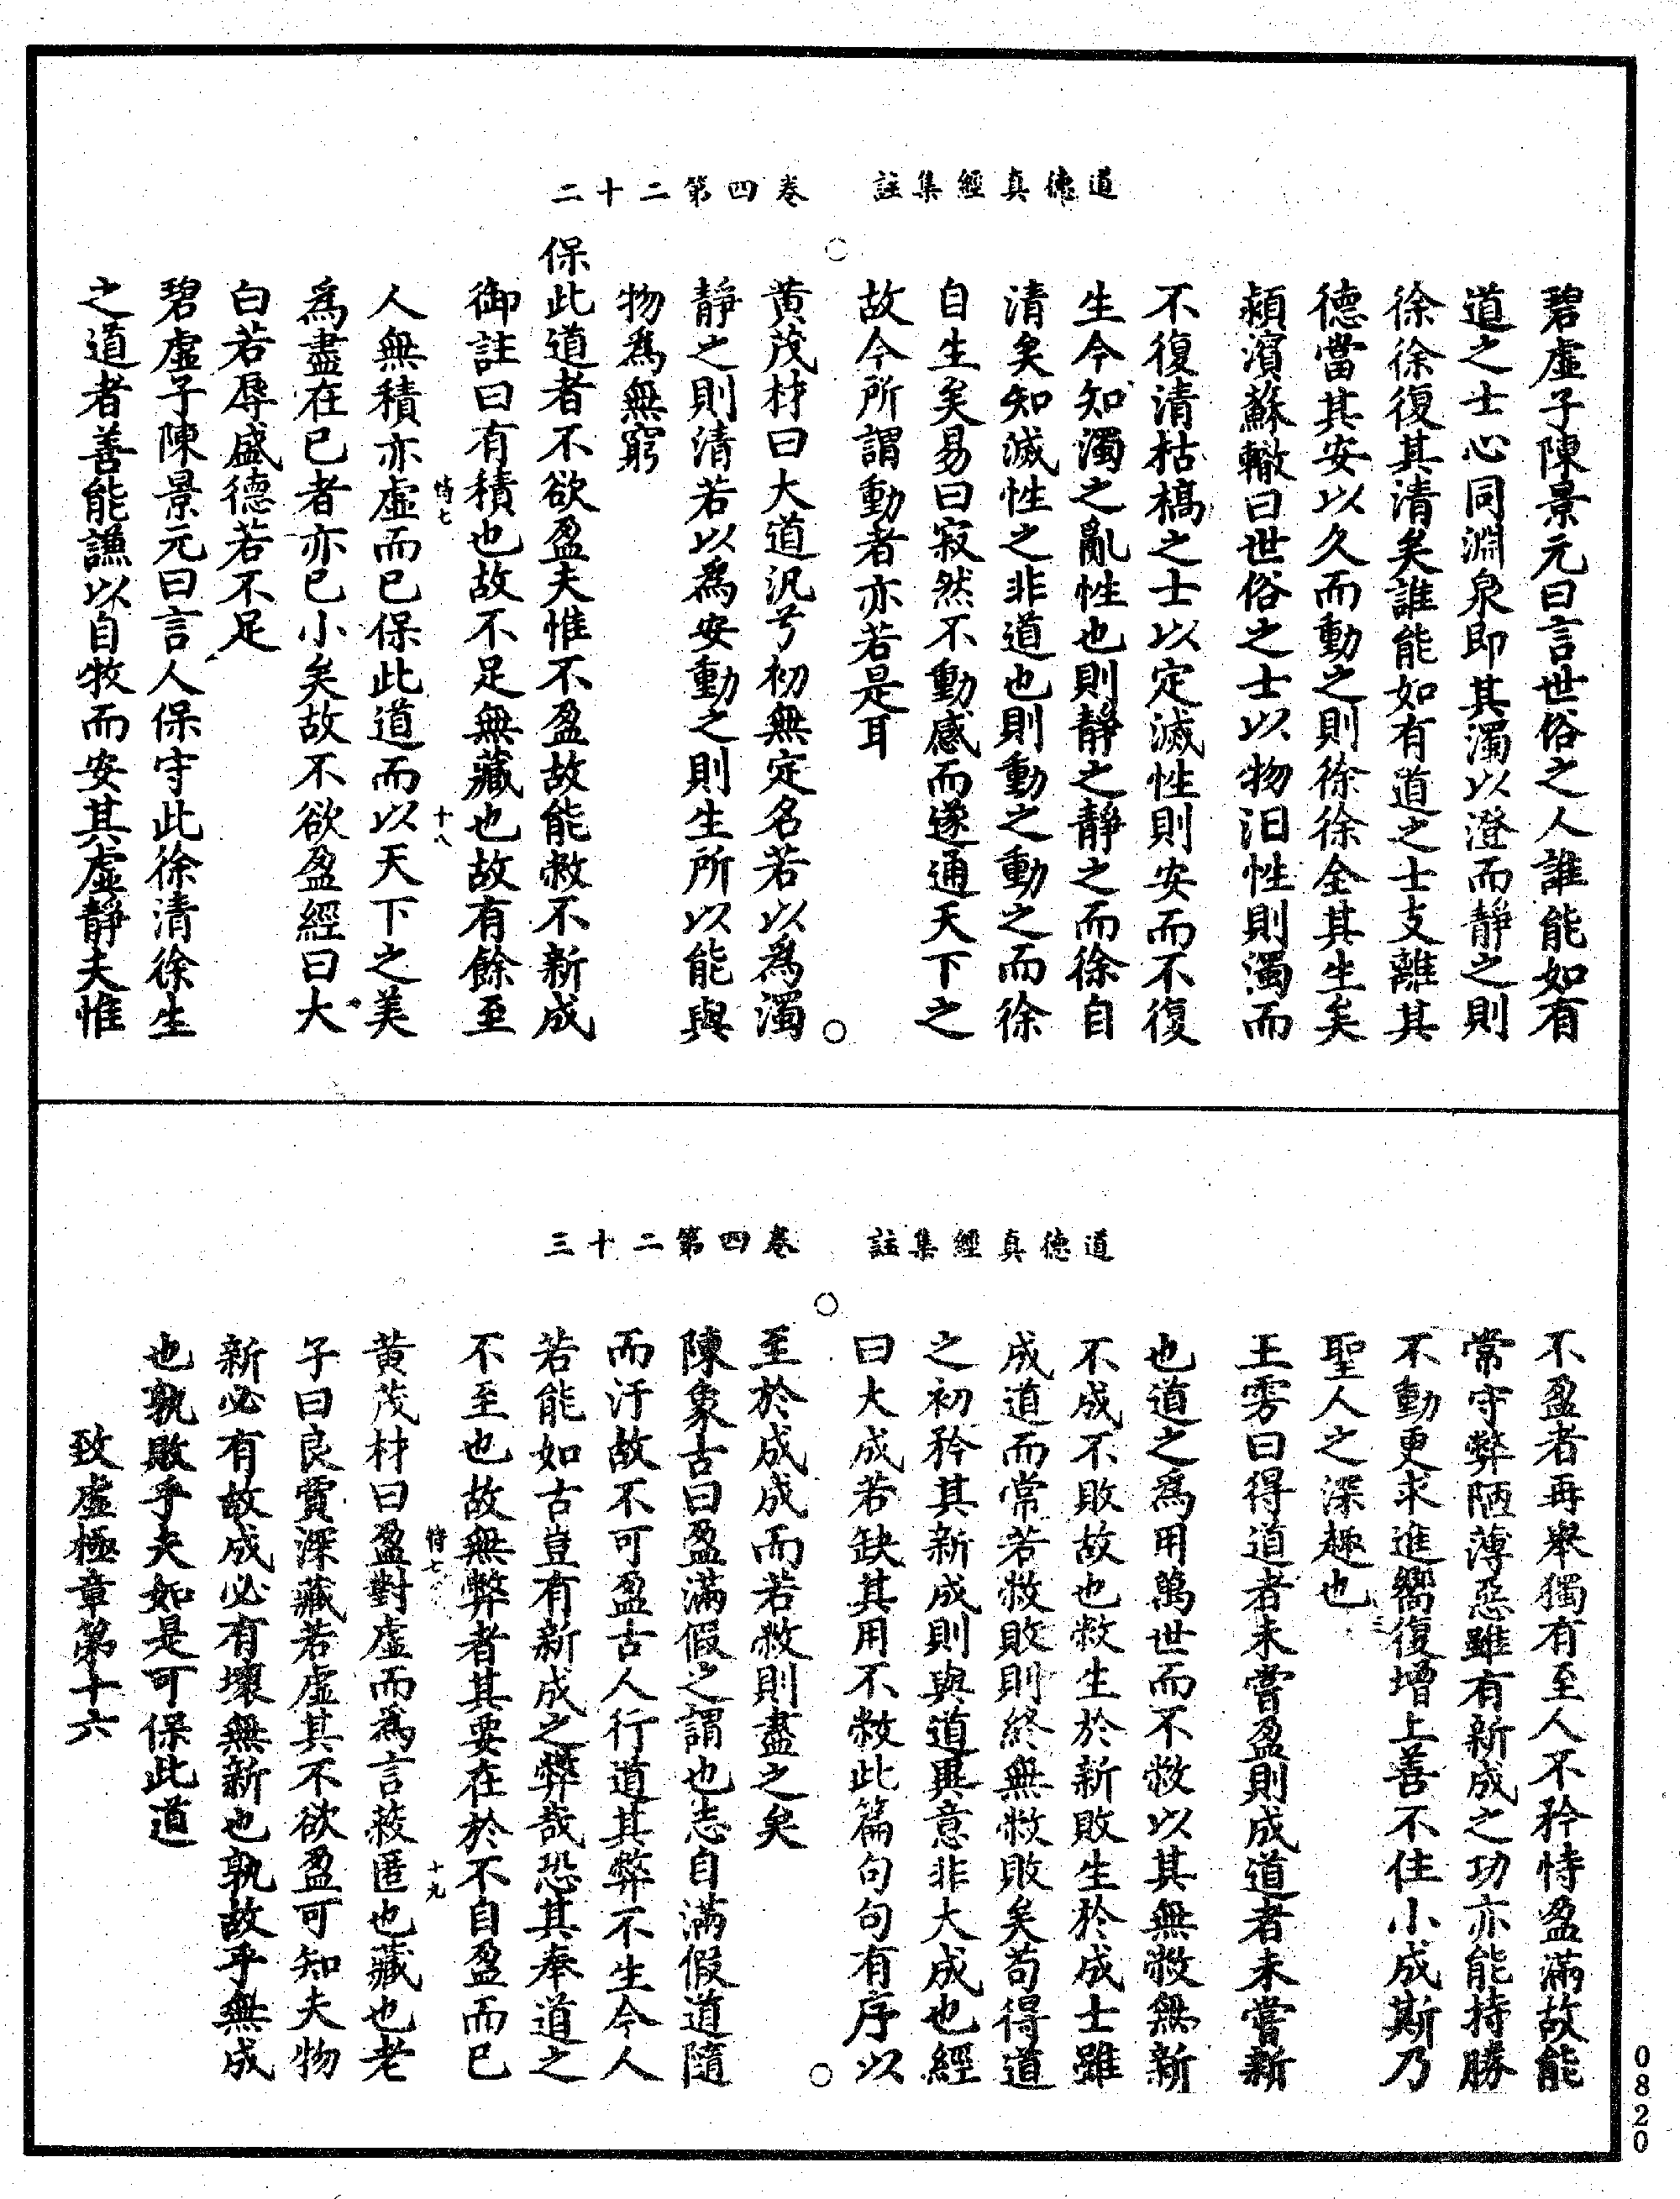 道德真經集註　卷四第二十二
碧虛子陳景元曰言世俗之人誰能如有
道之士心同淵泉即其濁以澄而靜之則
徐徐復其清矣誰能如有道之士支離其
德當其安以久而動之則徐徐全其生矣
頴濱蘇轍曰世俗之士以物汩性則濁而
不復清枯槁之士以定滅性則安而不復
生今知濁之亂性也則靜之靜之而徐自
清矣知滅性之非道也則動之動之而徐
自生矣易曰寂然不動感而遂通天下之
故今所謂動者亦若是耳
黃茂材曰大道汎兮初無定名若以爲濁
靜之則清若以爲安動之則生所以能與
物爲無窮
保此道者不欲盈夫惟不盈故能敝不新成
御註曰有積也故不足無藏也故有餘至
特七　十八
人無積亦虛而已保此道而以天下之美
爲盡在已者亦已小矣故不欲盈經曰大
白若辱盛德若不足
碧虛子陳景元曰言人保守此徐清徐生
之道者善能謙以自牧而安其虛靜夫惟
道德真經集註　卷四第二十三
不盈者再舉獨有至人不矜恃盈滿故能
常守弊陋薄惡雖有新成之功亦能持勝
不動更求進嚮復增上善不住小成斯乃
聖人之深趣也
王雱曰得道者未嘗盈則成道者未嘗新
也道之爲用萬世而不敝以其無敝無新
不成不敗故也敝生於新敗生於成士雖
成道而常若敝敗則終無敝敗矣苟得道
之初矜其新成則與道異意非大成也經
曰大成若缺其用不敝此篇句句有序以
至於成成而若敝則盡之矣
陳象古曰盈滿假之謂也志自滿假道隨
而汙故不可盈古人行道其弊不生今人
若能如古豈有新成之弊哉恐其奉道之
不至也故無弊者其要在於不自盈而已
特七　十九
黃茂材曰盈對虛而爲言蔽匿也藏也老
子曰良賈深藏若虛其不欲盈可知夫物
新必有故成必有壞無新也孰故乎無成
也孰敗乎夫如是可保此道
致虛極章第十六
0820